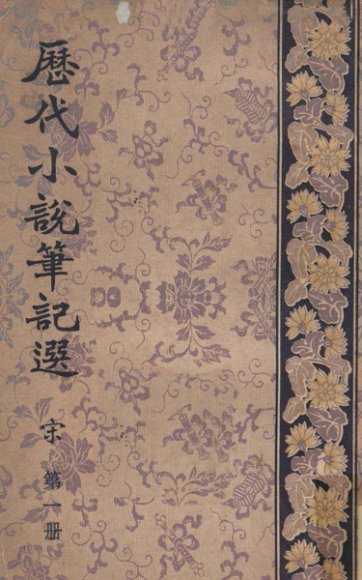 歷代小說筆記選
宋 第一册